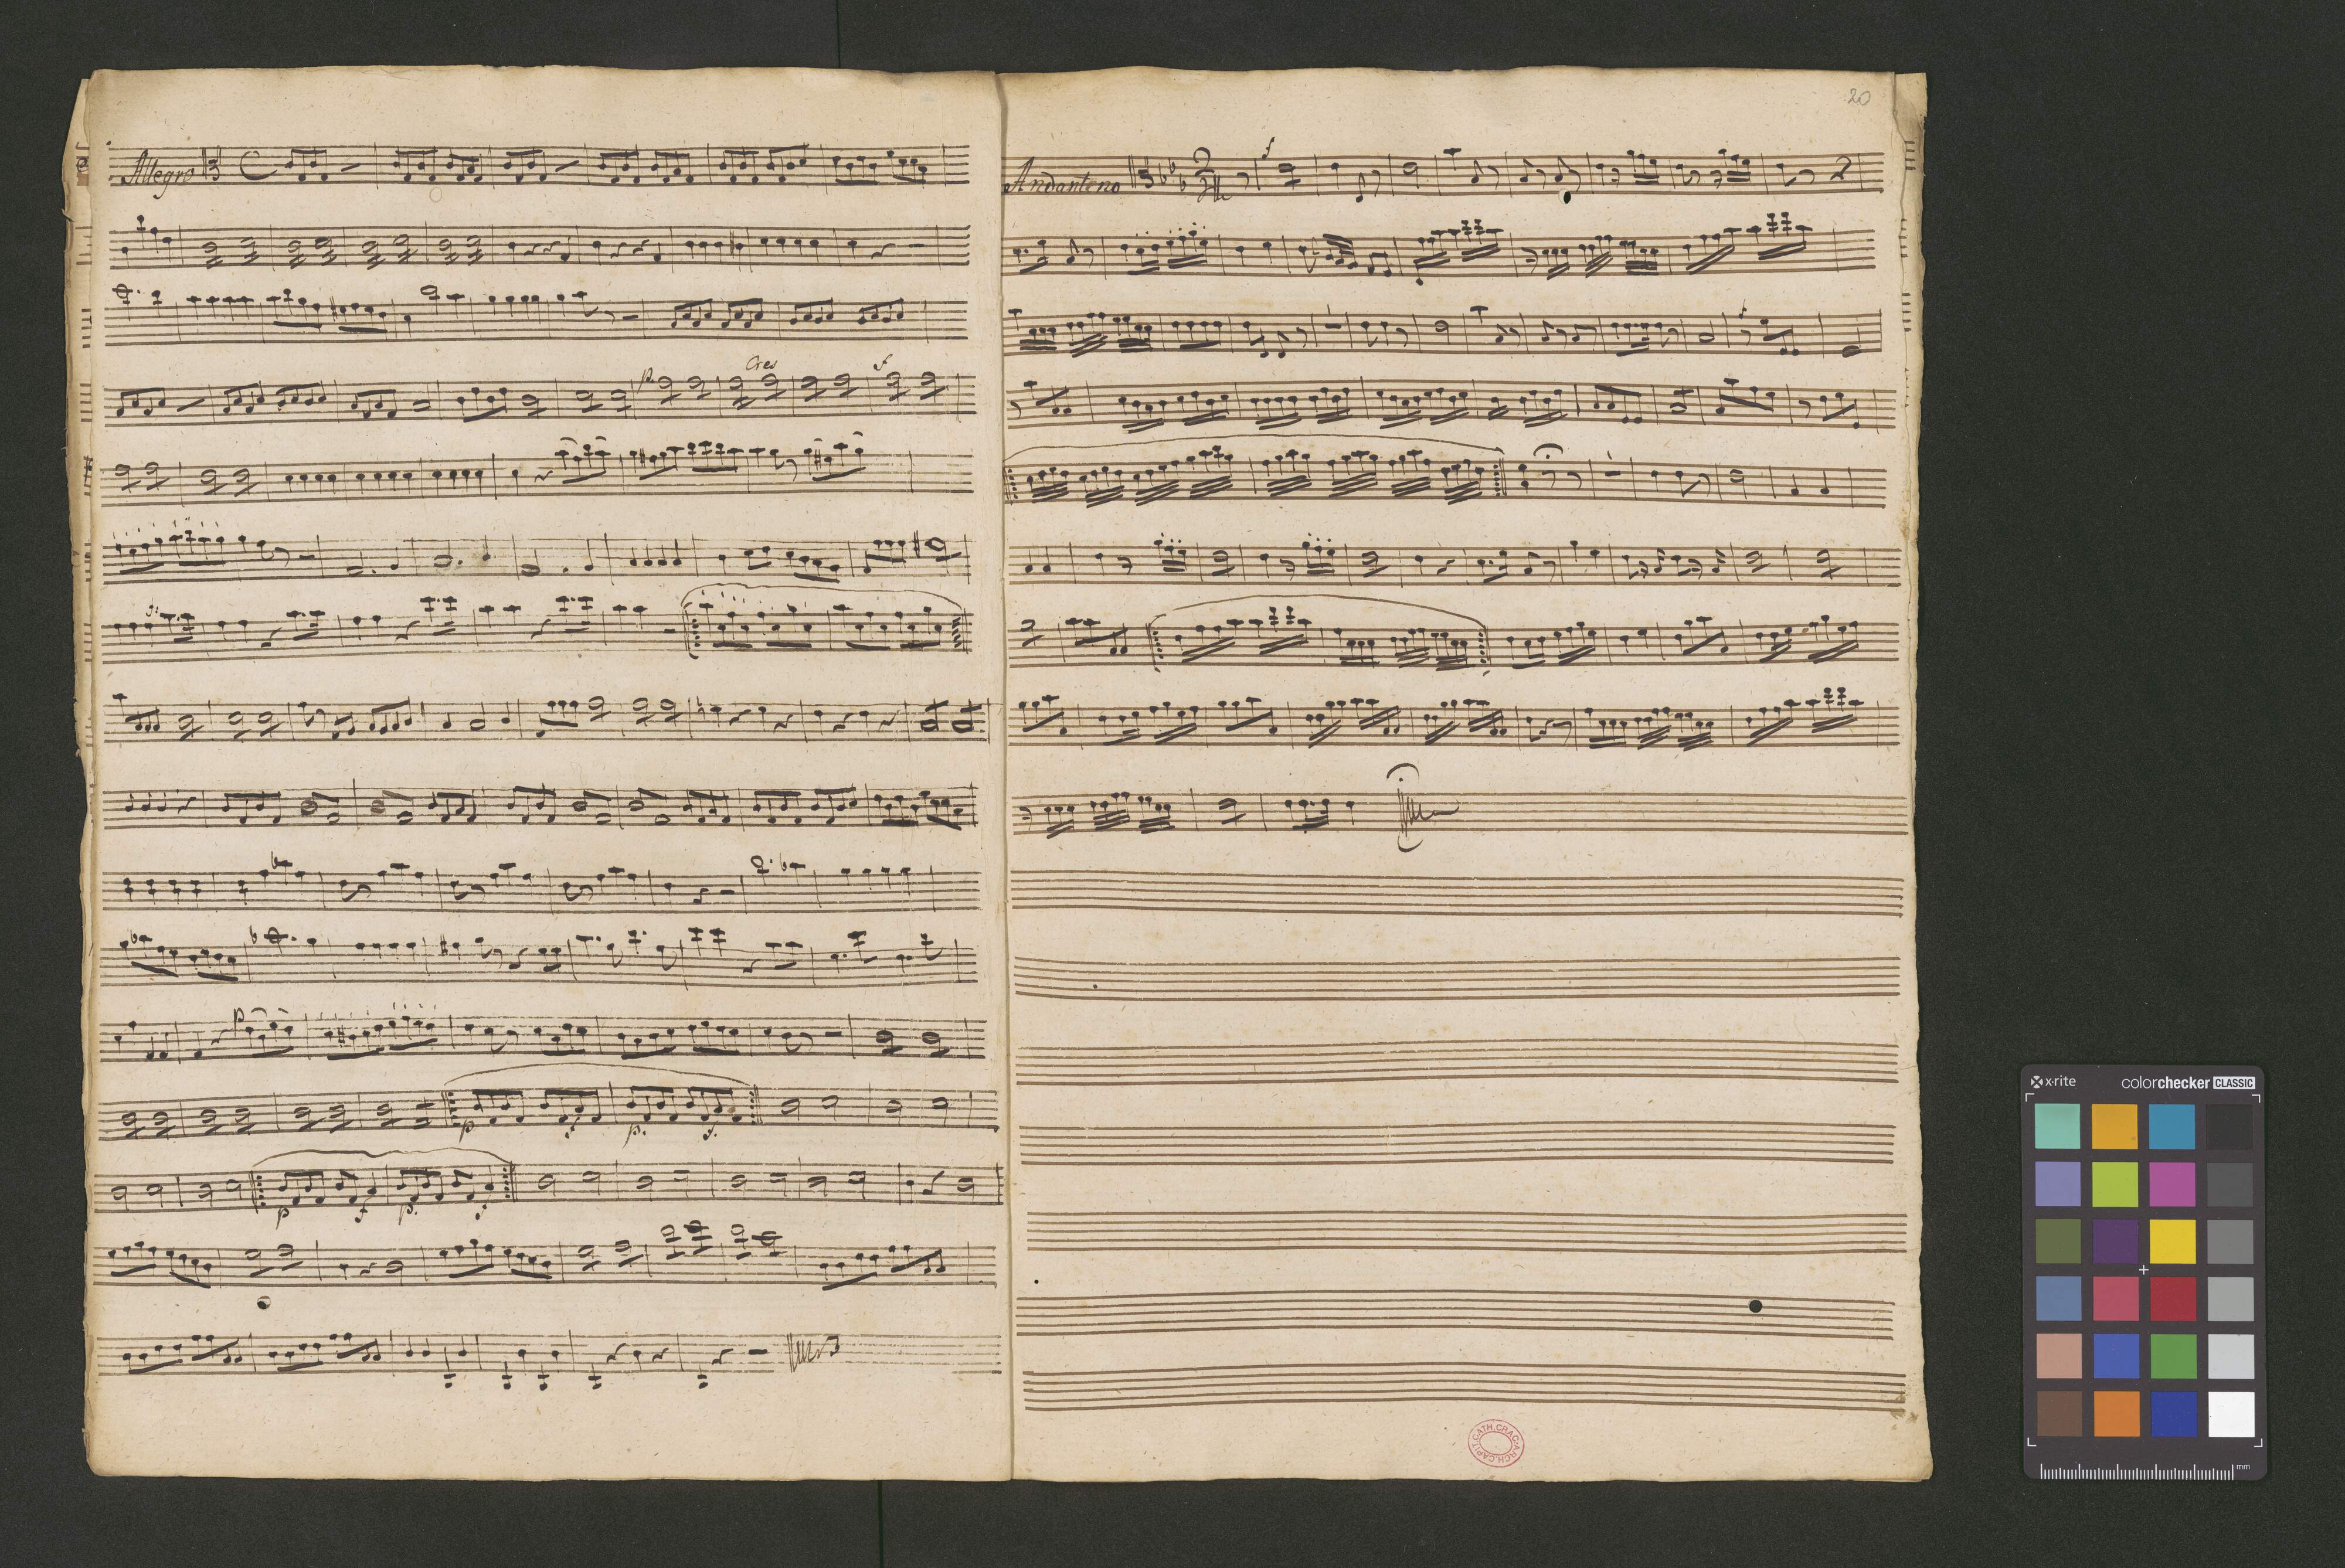 Allegro
p. Cres f
p
p f p. f.
p f p. f
20
Andanteno f
f
ARCH.CAPIT.CATH.CRAC.
x-rite colorchecker CLASSIC
mm